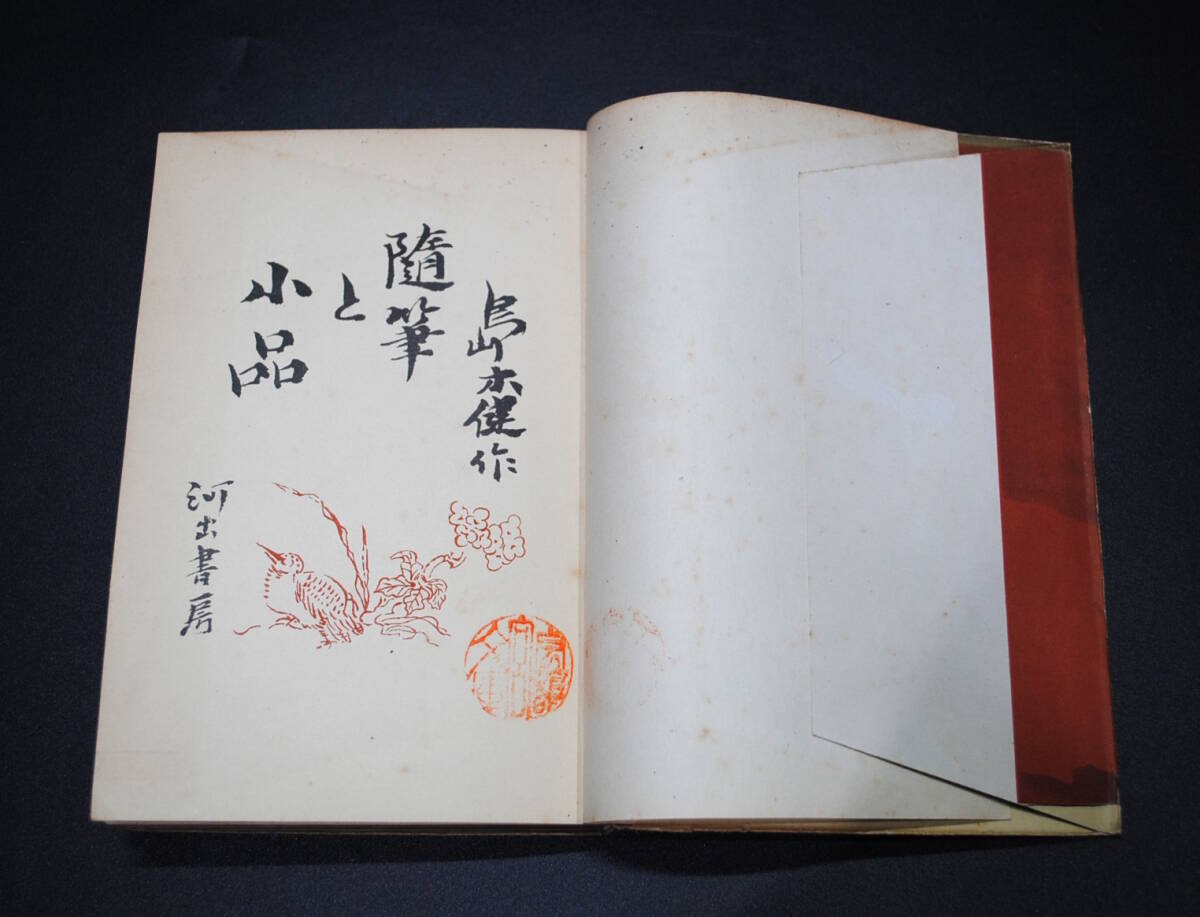 島木健作
隨筆
と
小品
河出書房